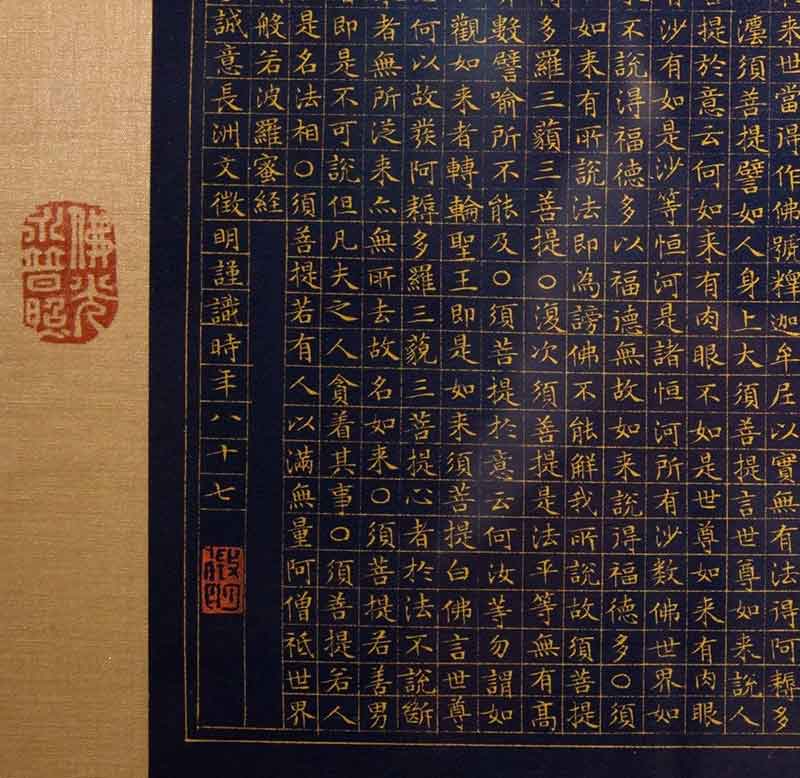 来世當得作佛號釋迦牟尼以實無有法得阿耨多
須菩提譬如人身上大須菩提言世尊如来說人
提於意云何如来有肉眼不如是世尊如来有肉眼
沙有如是沙等恒河是諸恒河所有沙数佛世界如
不說得福德多以福德無故如来說得福德多○須
如来有所說法即為謗佛不能解我所說故須菩提
多羅三藐三菩提○復次須菩提是法平等無有高
數譬喻所不能及○須菩提於意云何汝等勿謂如
觀如来者轉輪聖王即是如来須菩提白佛言世尊
何以故發阿耨多羅三藐三菩提心者於法不說斷
者無所從来亦無所去故名如来○須菩提若善男
即是不可說但凡夫之人貪着其事○須菩提若人
是名法相○須菩提若有人以滿無量阿僧祇世界
般若波羅蜜経
誠意長洲文徵明謹識時年八十七
徵明
佛光永普照